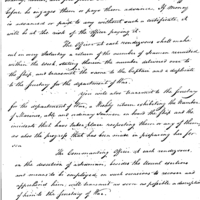 before he engages them or pays them advance. If Money
is advanced or paid to any without such a certificate, it
will be at the risk of the Officer paying it.
The Officer at each rendezvous will make
out on every Saturday a return of the number of Seamen recruited
within the week, stating therein the number delivered over to
the Ship and transmit the same to the Captain and a duplicate
to the Secretary for the department of War.
you will also transmit to the Secretary
for the department of War, a Weekly return exhibiting the number
of Marines, able and ordinary Seamen on board the Ship and the
incidents that have taken place respecting them or any of them;
as also the progress that has been made in preparing her for
sea
The Commanding Officer at each rendezvous,
on the desertion of a Seaman, besides the usual exertions
and means to be employed, on such occasions to recover and
apprehend him, will transmit as soon as possible a description
of him to the Secretary of War.